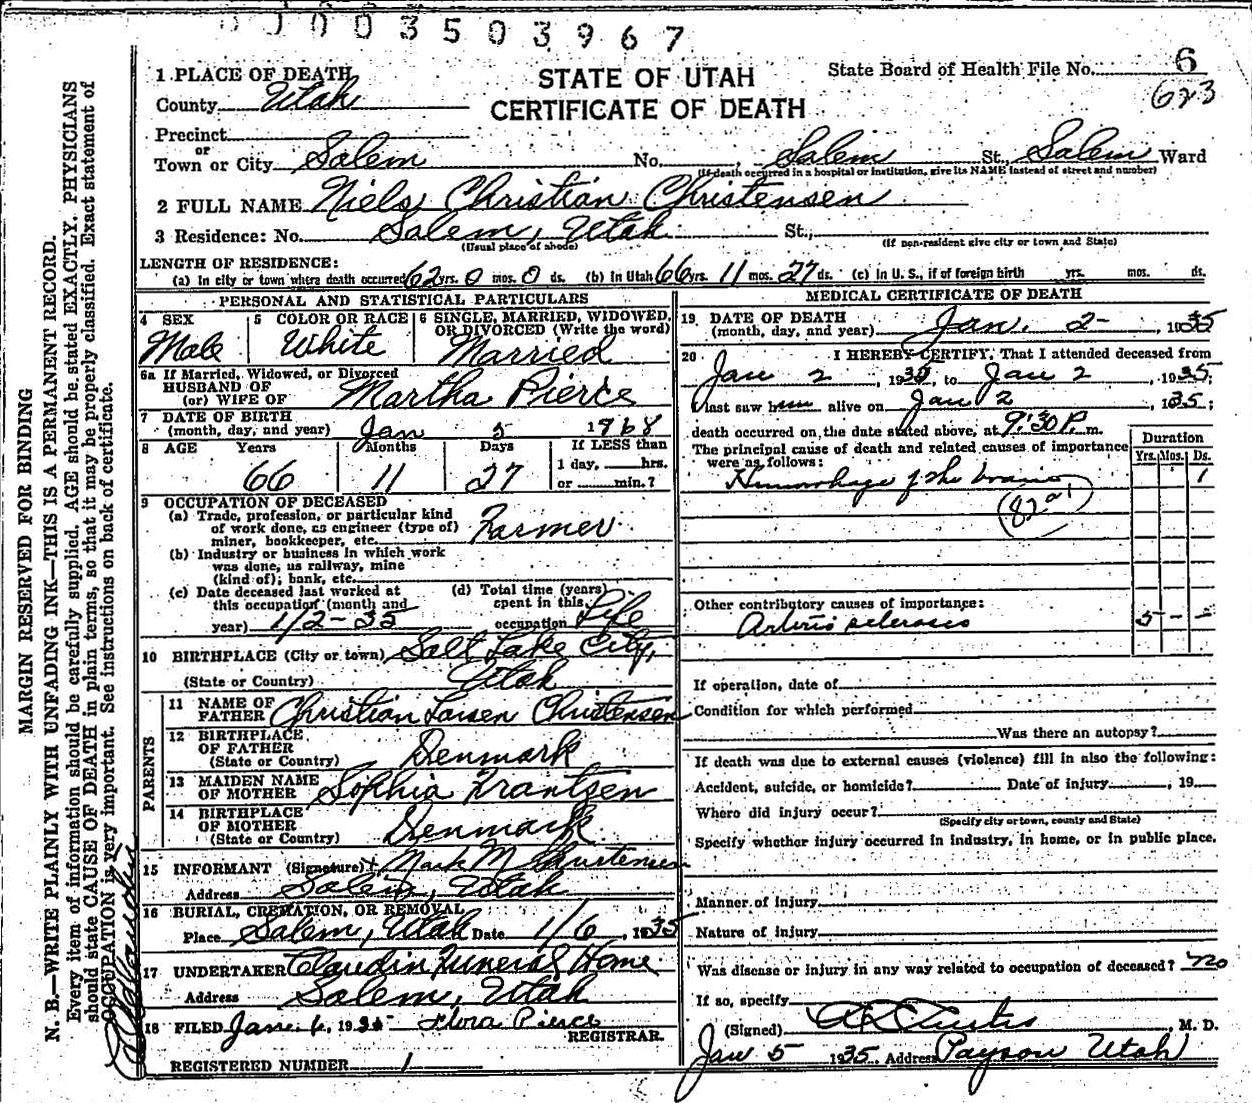 0003503967
STATE OF UTAH
CERTIFICATE OF DEATH
State Board of Health File No. 6
623
1 PLACE OF DEATH
County Utah
Precinct
or
Town or City Salem No. , Salem St., Salem Ward
(If death occurred in a hospital or institution, give its NAME instead of street and number)
2 FULL NAME Niels Christian Christensen
3 Residence: No. Salem, Utah St.,
(Usual place of abode) (If non-resident give city or town and State)
LENGTH OF RESIDENCE:
(a) In city or town where death occurred 62 yrs. 0 mos. 0 ds. (b) In Utah 66 yrs. 11 mos. 27 ds. (c) In U. S., if of foreign birth yrs. mos. ds.
PERSONAL AND STATISTICAL PARTICULARS
4 SEX 5 COLOR OR RACE 6 SINGLE, MARRIED, WIDOWED, OR DIVORCED (Write the word)
Male White Married
6a If Married, Widowed, or Divorced
HUSBAND OF
(or) WIFE OF Martha Pierce
7 DATE OF BIRTH
(month, day, and year) Jan 5 1868
8 AGE Years Months Days If LESS than
1 day, hrs.
66 11 27 or min.?
9 OCCUPATION OF DECEASED
(a) Trade, profession, or particular kind
of work done, as engineer (type of)
miner, bookkeeper, etc. Farmer
(b) Industry or business in which work
was done, as railway, mine
(kind of); bank, etc.
(c) Date deceased last worked at
this occupation (month and
year) 1/2-35
(d) Total time (years)
spent in this
occupation Life
10 BIRTHPLACE (City or town) Salt Lake City,
(State or Country) Utah
PARENTS
11 NAME OF
FATHER Christian Larsen Christensen
12 BIRTHPLACE
OF FATHER
(State or Country) Denmark
13 MAIDEN NAME
OF MOTHER Sophia Frantzen
14 BIRTHPLACE
OF MOTHER
(State or Country) Denmark
15 INFORMANT (Signature) Mark M Christensen
Address Salem, Utah
16 BURIAL, CREMATION, OR REMOVAL
Place Salem, Utah Date 1/6, 1935
17 UNDERTAKER Claudin Funeral Home
Address Salem, Utah
18 FILED Jan. 6, 1935 Flora Pierce
REGISTRAR.
REGISTERED NUMBER 1
MEDICAL CERTIFICATE OF DEATH
19 DATE OF DEATH
(month, day, and year) Jan. 2-, 1935
20 I HEREBY CERTIFY, That I attended deceased from
Jan 2, 1935, to Jan 2, 1935;
I last saw him alive on Jan 2, 1935;
death occurred on the date stated above, at 9:30 P. m.
The principal cause of death and related causes of importance
were as follows:
Duration
Yrs. Mos. Ds.
Hemorrhage of the brain 1
(82a1)
Other contributory causes of importance:
Arterio sclerosis 5 - -
If operation, date of
Condition for which performed
Was there an autopsy?
If death was due to external causes (violence) fill in also the following:
Accident, suicide, or homicide? Date of injury , 19
Where did injury occur?
(Specify city or town, county and State)
Specify whether injury occurred in industry, in home, or in public place.
Manner of injury
Nature of injury
Was disease or injury in any way related to occupation of deceased? no
If so, specify
(Signed) Curtis, M. D.
Jan 5 1935 Address Payson Utah
MARGIN RESERVED FOR BINDING
N. B.—WRITE PLAINLY WITH UNFADING INK—THIS IS A PERMANENT RECORD.
Every item of information should be carefully supplied. AGE should be stated EXACTLY. PHYSICIANS
should state CAUSE OF DEATH in plain terms, so that it may be properly classified. Exact statement of
OCCUPATION is very important. See instructions on back of certificate.